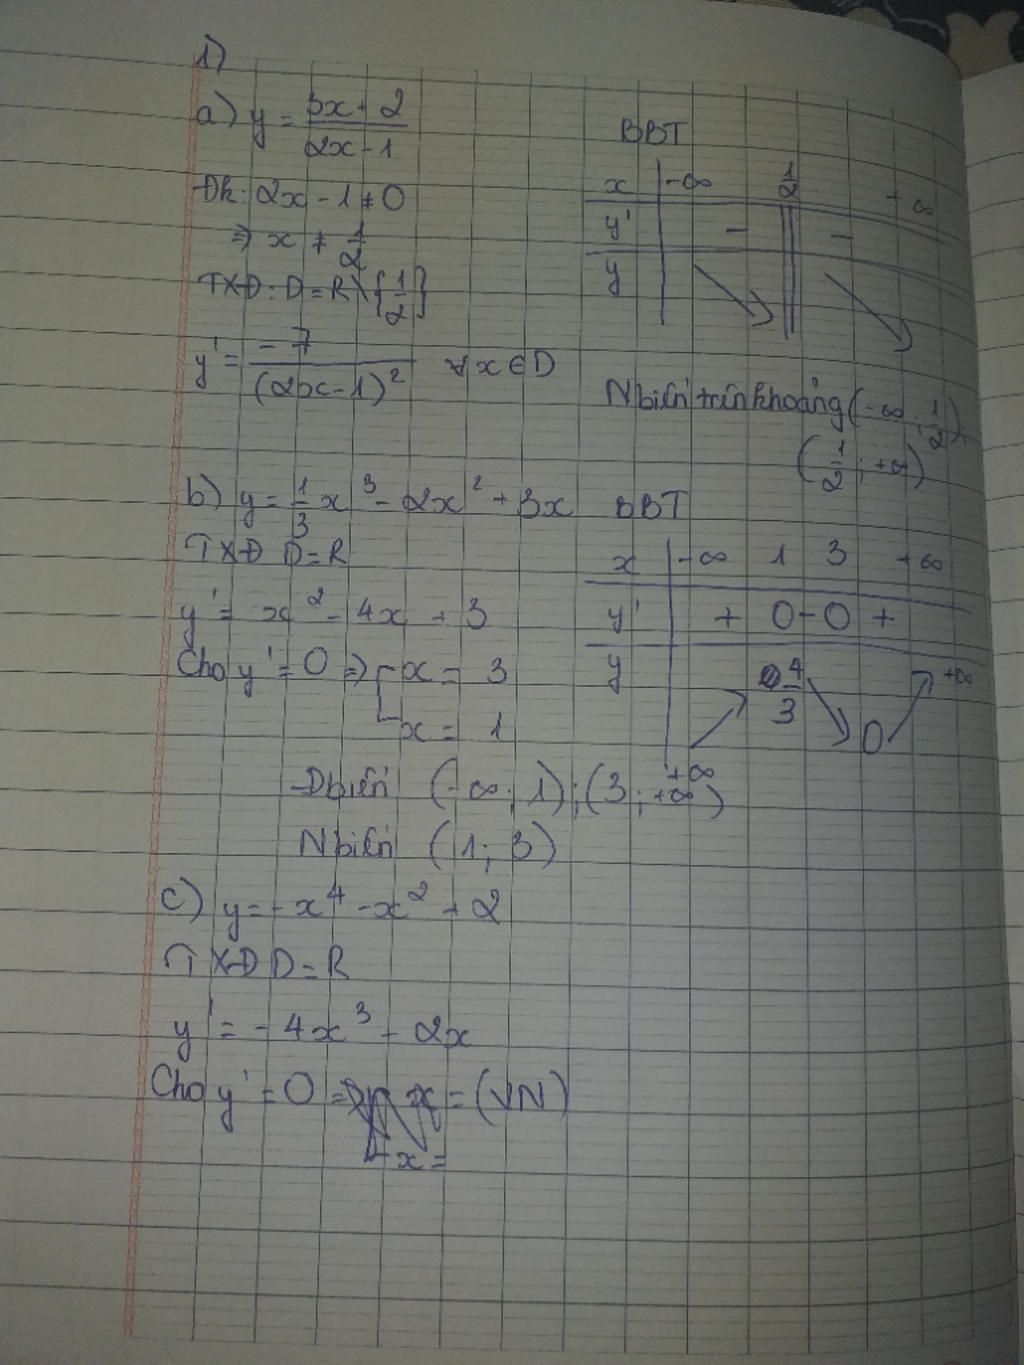 1)
a) y = 3x + 2 / 2x - 1
Đk: 2x - 1 ≠ 0
⇒ x ≠ 1/2
TXĐ: D = R \ {1/2}
y' = -7 / (2x - 1)² ∀x ∈ D
BBT
x | -∞ 1/2 +∞
y' | - || -
y | ↘ || ↘
Nbiến trên khoảng (-∞; 1/2);
(1/2; +∞)
b) y = 1/3 x³ - 2x² + 3x
TXĐ D = R
y' = x² - 4x + 3
Cho y' = 0 ⇒ [ x = 3
x = 1
BBT
x | -∞ 1 3 +∞
y' | + 0 - 0 +
y | ↗ 4/3 ↘ 0 ↗ +∞
Đbiến (-∞; 1); (3; +∞)
+∞
Nbiến (1; 3)
c) y = -x⁴ - x² + 2
TXĐ D = R
y' = -4x³ - 2x
Cho y' = 0 ⇒ x = (VN)
x =